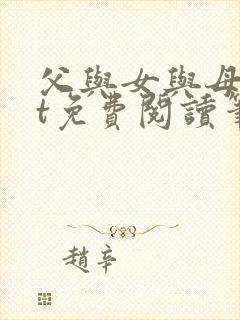 父與女與母
t免費閱讀筆
趙辛